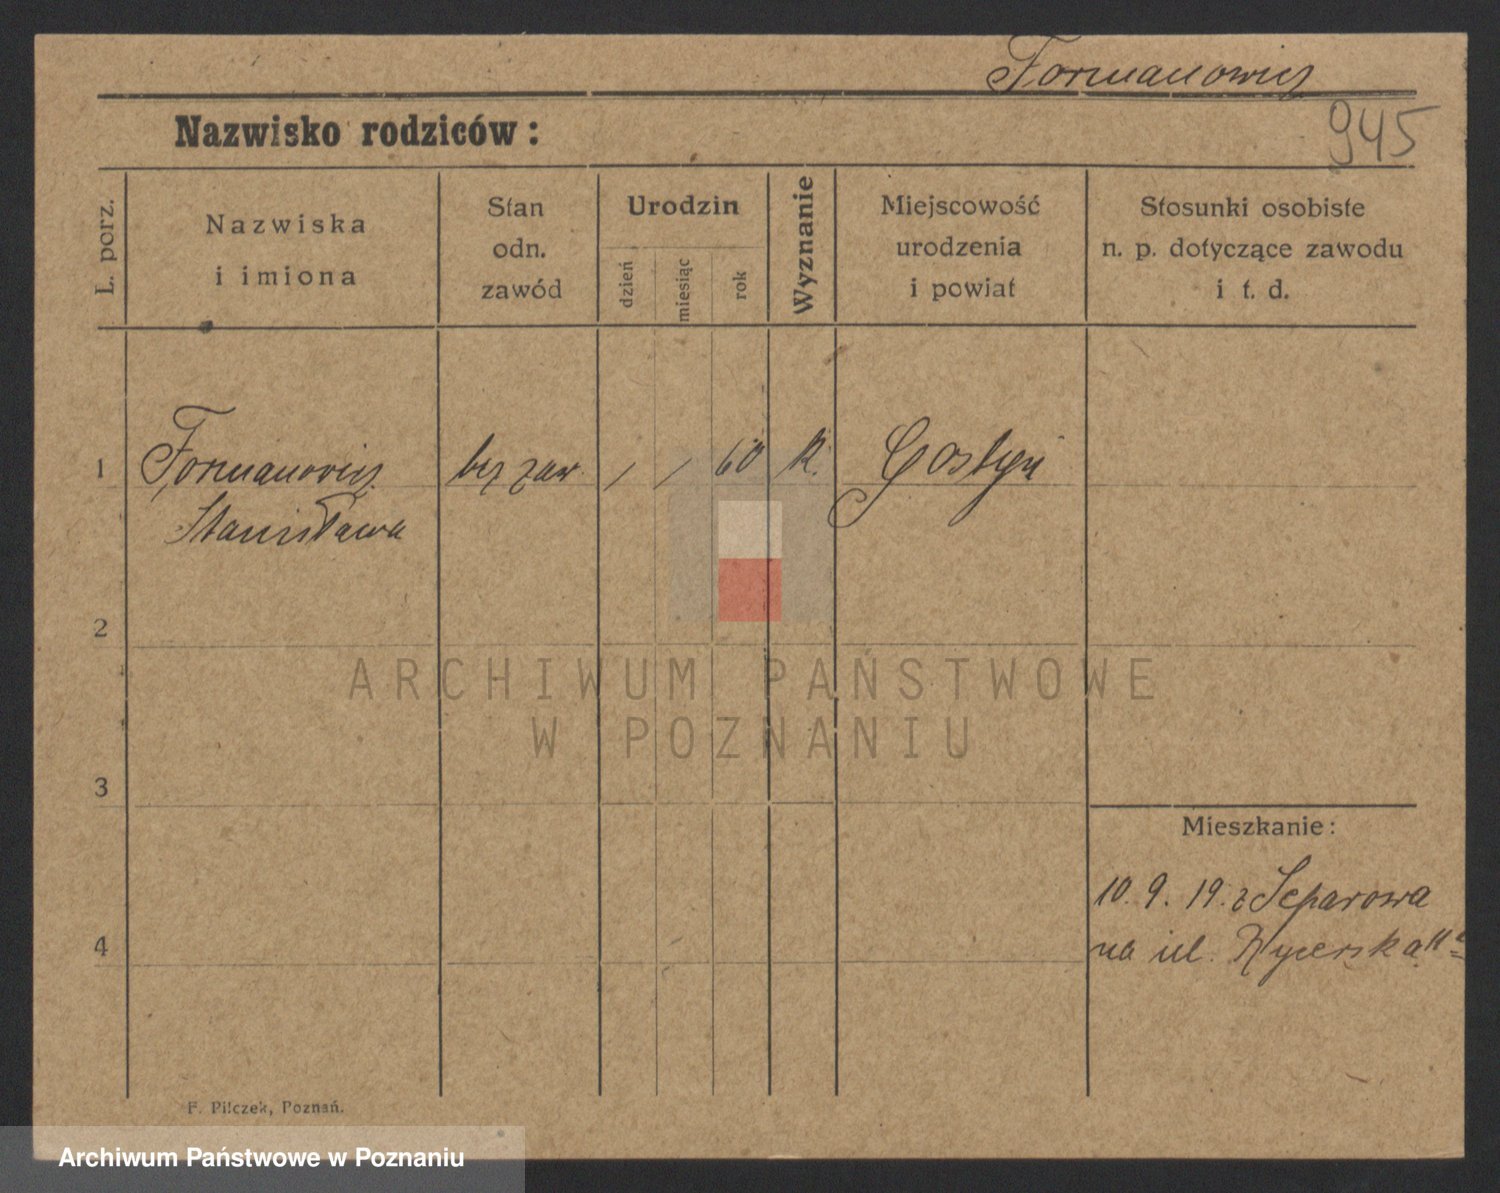 Formanowicz
945
Nazwisko rodziców:
L. porz.
Nazwiska
i imiona
Stan
odn.
zawód
Urodzin
dzień
miesiąc
rok
Wyznanie
Miejscowość
urodzenia
i powiat
Stosunki osobiste
n. p. dotyczące zawodu
i t. d.
1 Formanowicz bez zaw. / / 60 K. Gostyń
Stanisława
2
ARCHIWUM PAŃSTWOWE
W POZNANIU
3
Mieszkanie:
10. 9. 19. z Separowa
4
na ul. Rycerska
F. Pilczek, Poznań.
Archiwum Państwowe w Poznaniu